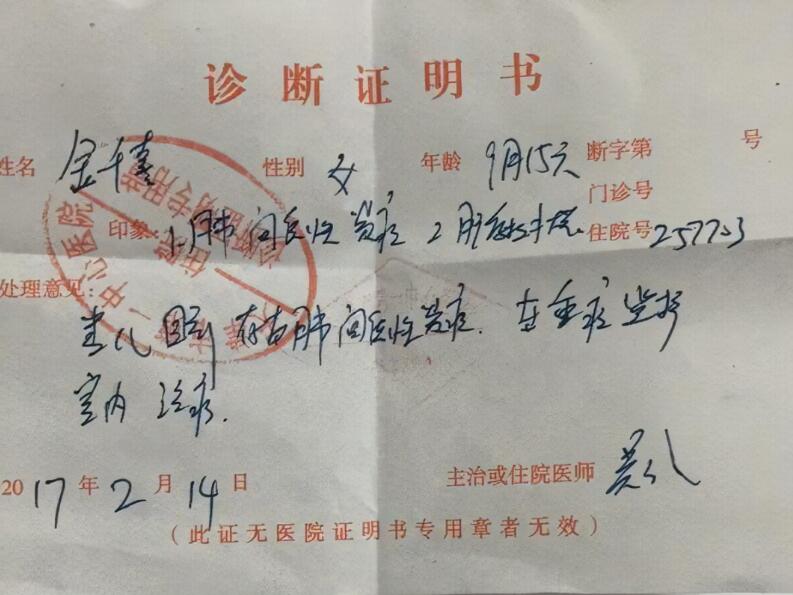 诊断证明书
姓名 金千 性别 女 年龄 9月15天 断字第 号
门诊号
印象: 1.肺间质性炎症 2. 住院号 257703
处理意见:
患儿因 肺间质性炎症. 在重症监护
室内治疗.
2017年2月14日 主治或住院医师
(此证无医院证明书专用章者无效)
中心医院
住院
诊断证明专用章